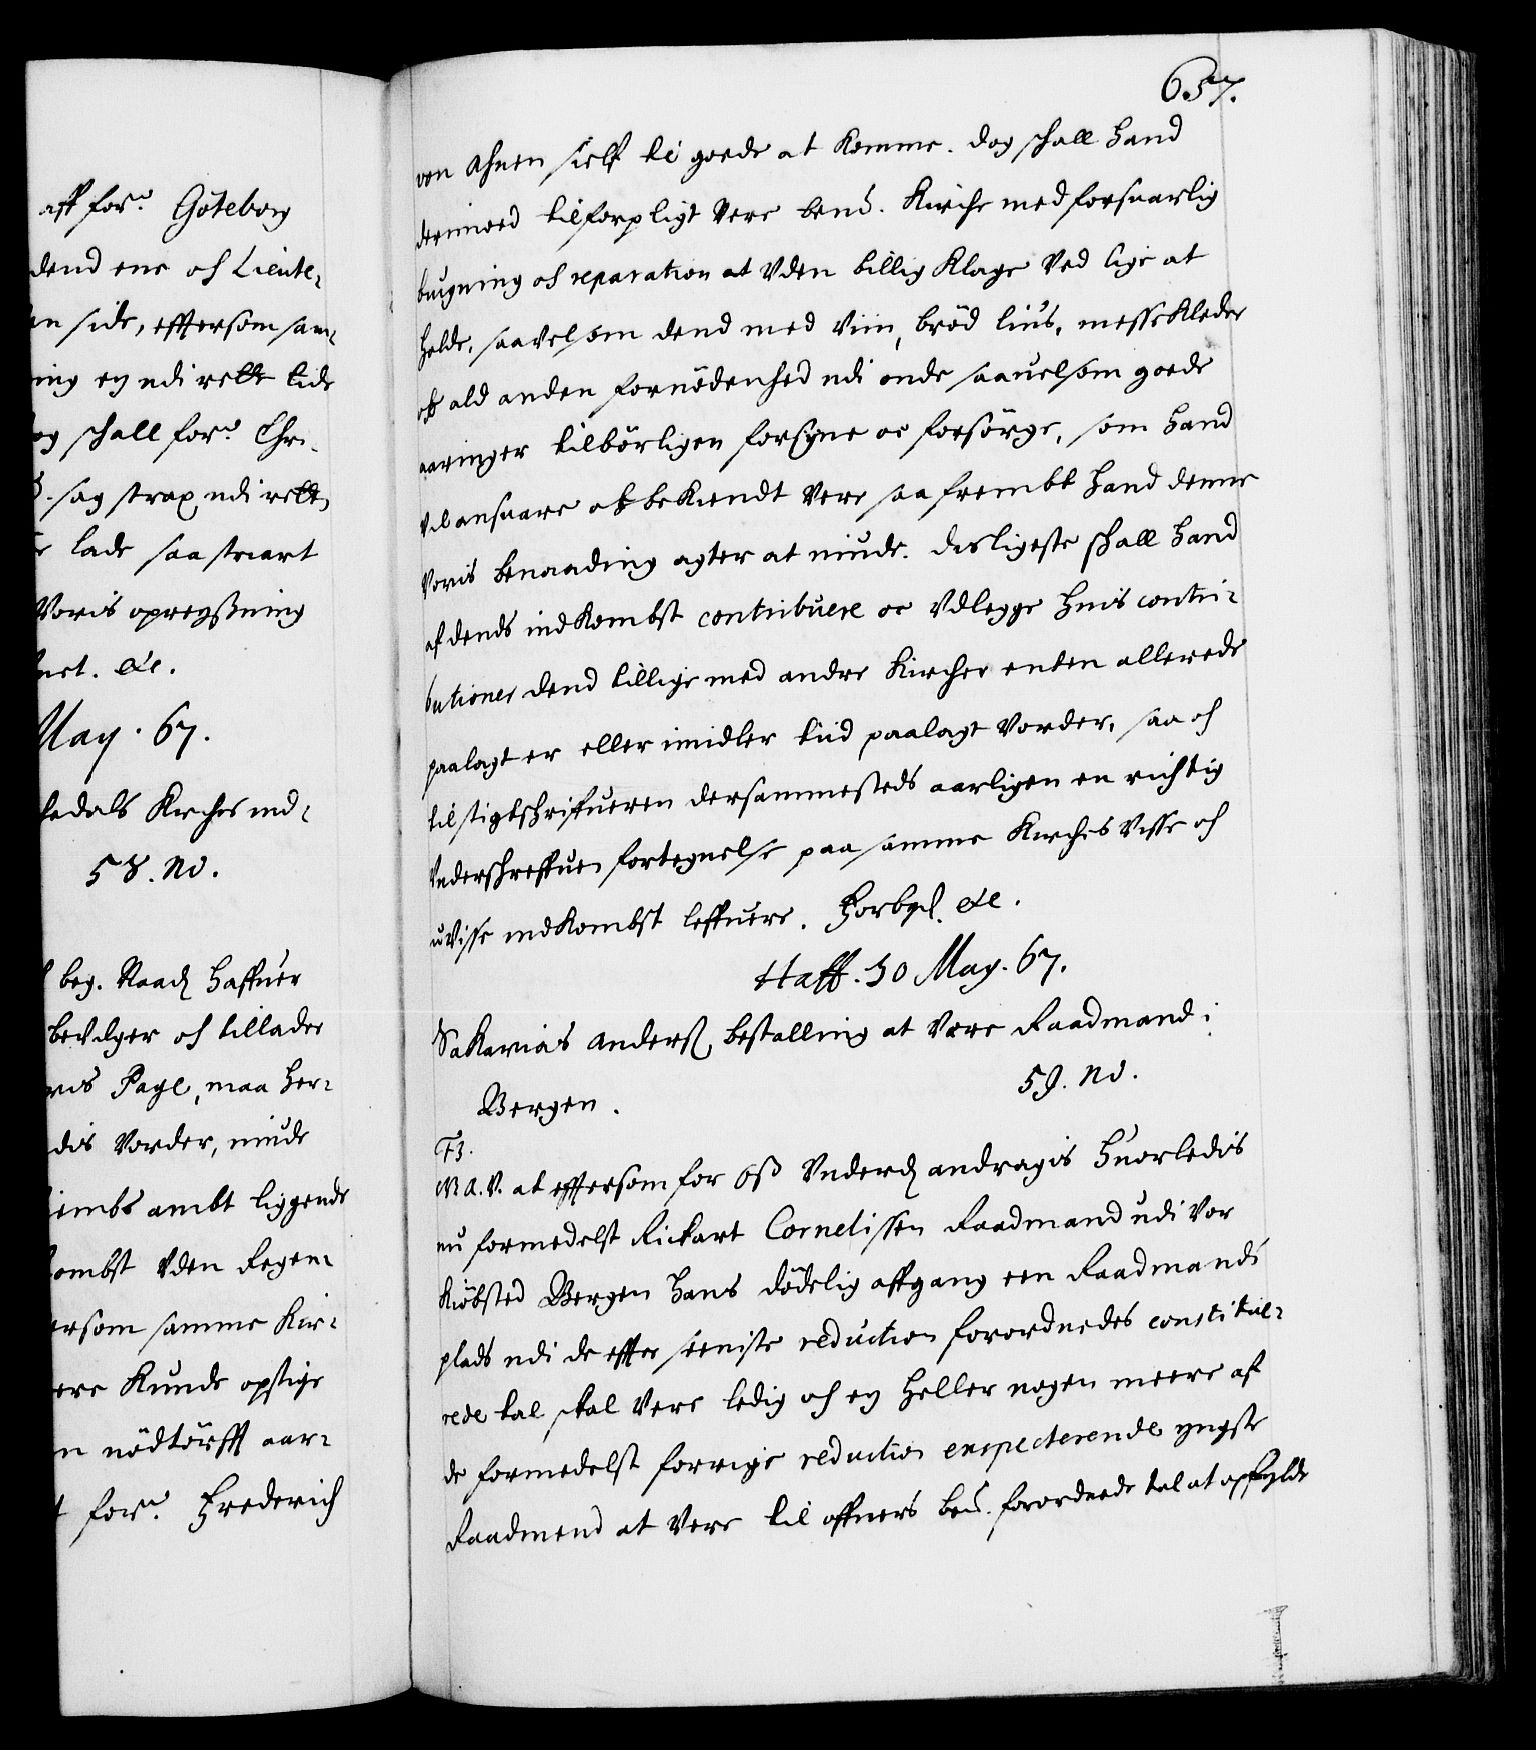 aff for:ne Göteborg
dend ene oc Lieute-
en side, effersom sam-
ing ey udi rette tide
og schall for:ne Chri-
sag strax udi rette
lade saa snart
Voris opreyßning
&c.
May. 67.
ledals Kirches ind-
58. No.
beg. Naad. Haffuer
bevilger och tillader
Page, maa her-
dis Vorder, niude
iembs ambt liggende
ombst Uden Regen-
ersom samme Kir-
ere Kunde opstige
n nödtörfft aar-
for:ne Frederich
657.
von Ahnen sielf til goede at komme. dog schall hand
derimoed tilforpligt Vere bem:te Kirche med forsuarlig
bugning och reparation at Uden billig Klage Ved lige at
holde, saavelsom dend med Viin, bröd lius, messeKleder
och ald anden fornödenhed udi onde saauelsom goede
aaringer tilbörligen forsyne oc forsörge, som hand
Vil ansuare och beKiendt Vere saa frembt hand denne
Voris benaading agter at niude. desligeste schall hand
af dends indKombst contribuere oc Udlegge huis contri-
butioner dend tillige med andre Kircher enten allerede
paalagt er eller imidler tiid paalagt Vorder, saa och
til stigtschriffueren dersammesteds aarligen en richtig
Underschreffuen fortegnelse paa samme Kirches Visse och
uvisse indKombst leffuere. Forbyd. &c.
Haff. 30 May. 67.
Sakarias Anderß. bestalling at Vere Raadmand i
Bergen. 59. No.
F3.
W A. V. at effersom for oß Underd. andragis huorledis
nu formedelst Rickart Cornelissen Raadmand udi Vor
Kiöbsted Bergen hans dödelig affgang een Raadmands
plads udi de effter seeniste reduction forordnedes constitue-
rede tal skal Vere ledig och ey heller nogen meere af
de formedelst forrige reduction exspecterende yngste
Raadmend at Vere til offuers bem:te forordnede tal at opfylde